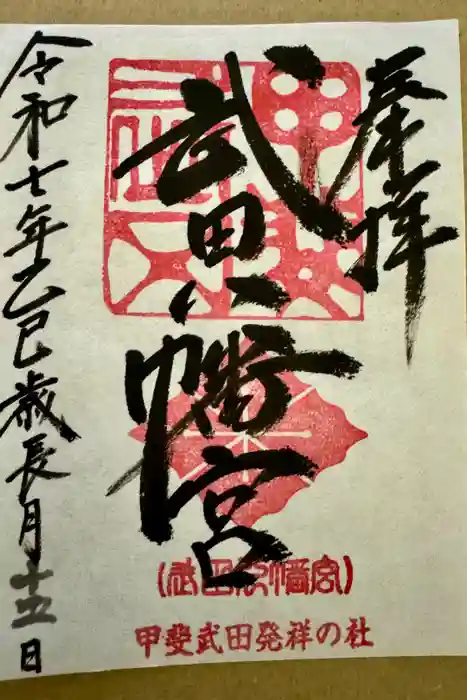 奉拝
武田八幡宮
(武田八幡宮)
甲斐武田発祥の社
令和七年乙巳歳長月十五日